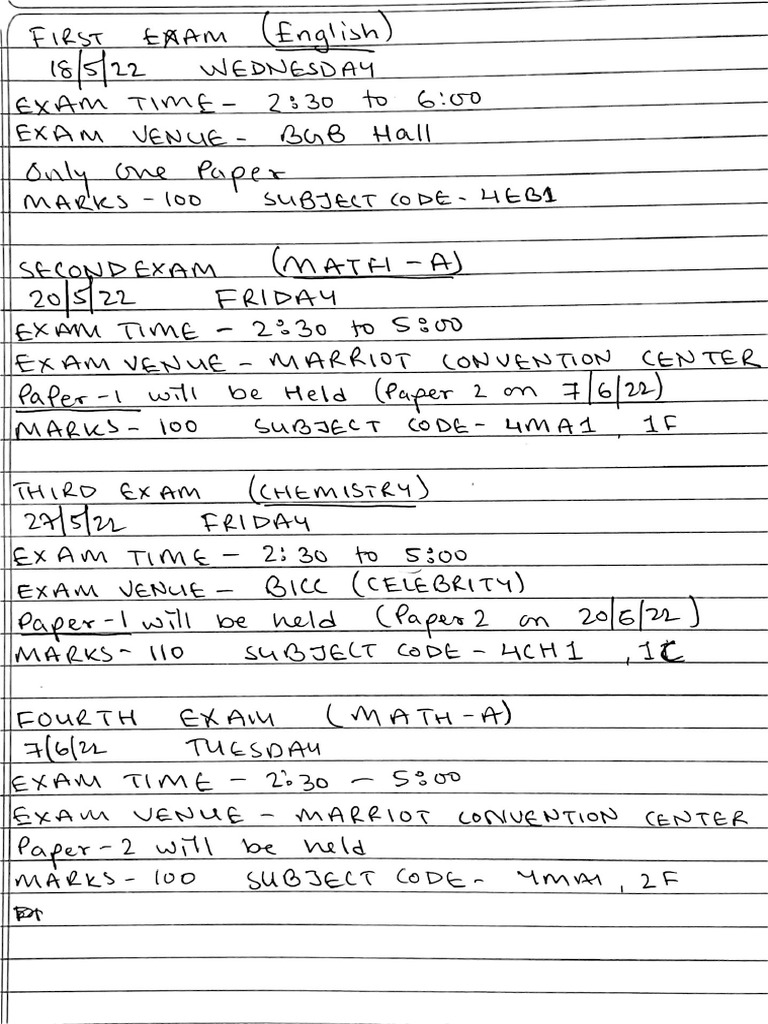 FIRST EXAM (English)
18/5/22 WEDNESDAY
EXAM TIME - 2:30 to 6:00
EXAM VENUE - BGB Hall
Only one Paper
MARKS - 100 SUBJECT CODE - 4EB1
SECOND EXAM (MATH - A)
20/5/22 FRIDAY
EXAM TIME - 2:30 to 5:00
EXAM VENUE - MARRIOT CONVENTION CENTER
Paper-1 will be Held (Paper 2 on 7/6/22)
MARKS - 100 SUBJECT CODE - 4MA1, 1F
THIRD EXAM (CHEMISTRY)
27/5/22 FRIDAY
EXAM TIME - 2:30 to 5:00
EXAM VENUE - BICC (CELEBRITY)
Paper-1 will be held (Paper 2 on 20/6/22)
MARKS - 110 SUBJECT CODE - 4CH1, 1C
FOURTH EXAM (MATH-A)
7/6/22 TUESDAY
EXAM TIME - 2:30 - 5:00
EXAM VENUE - MARRIOT CONVENTION CENTER
Paper-2 will be held
MARKS - 100 SUBJECT CODE - 4MA1, 2F